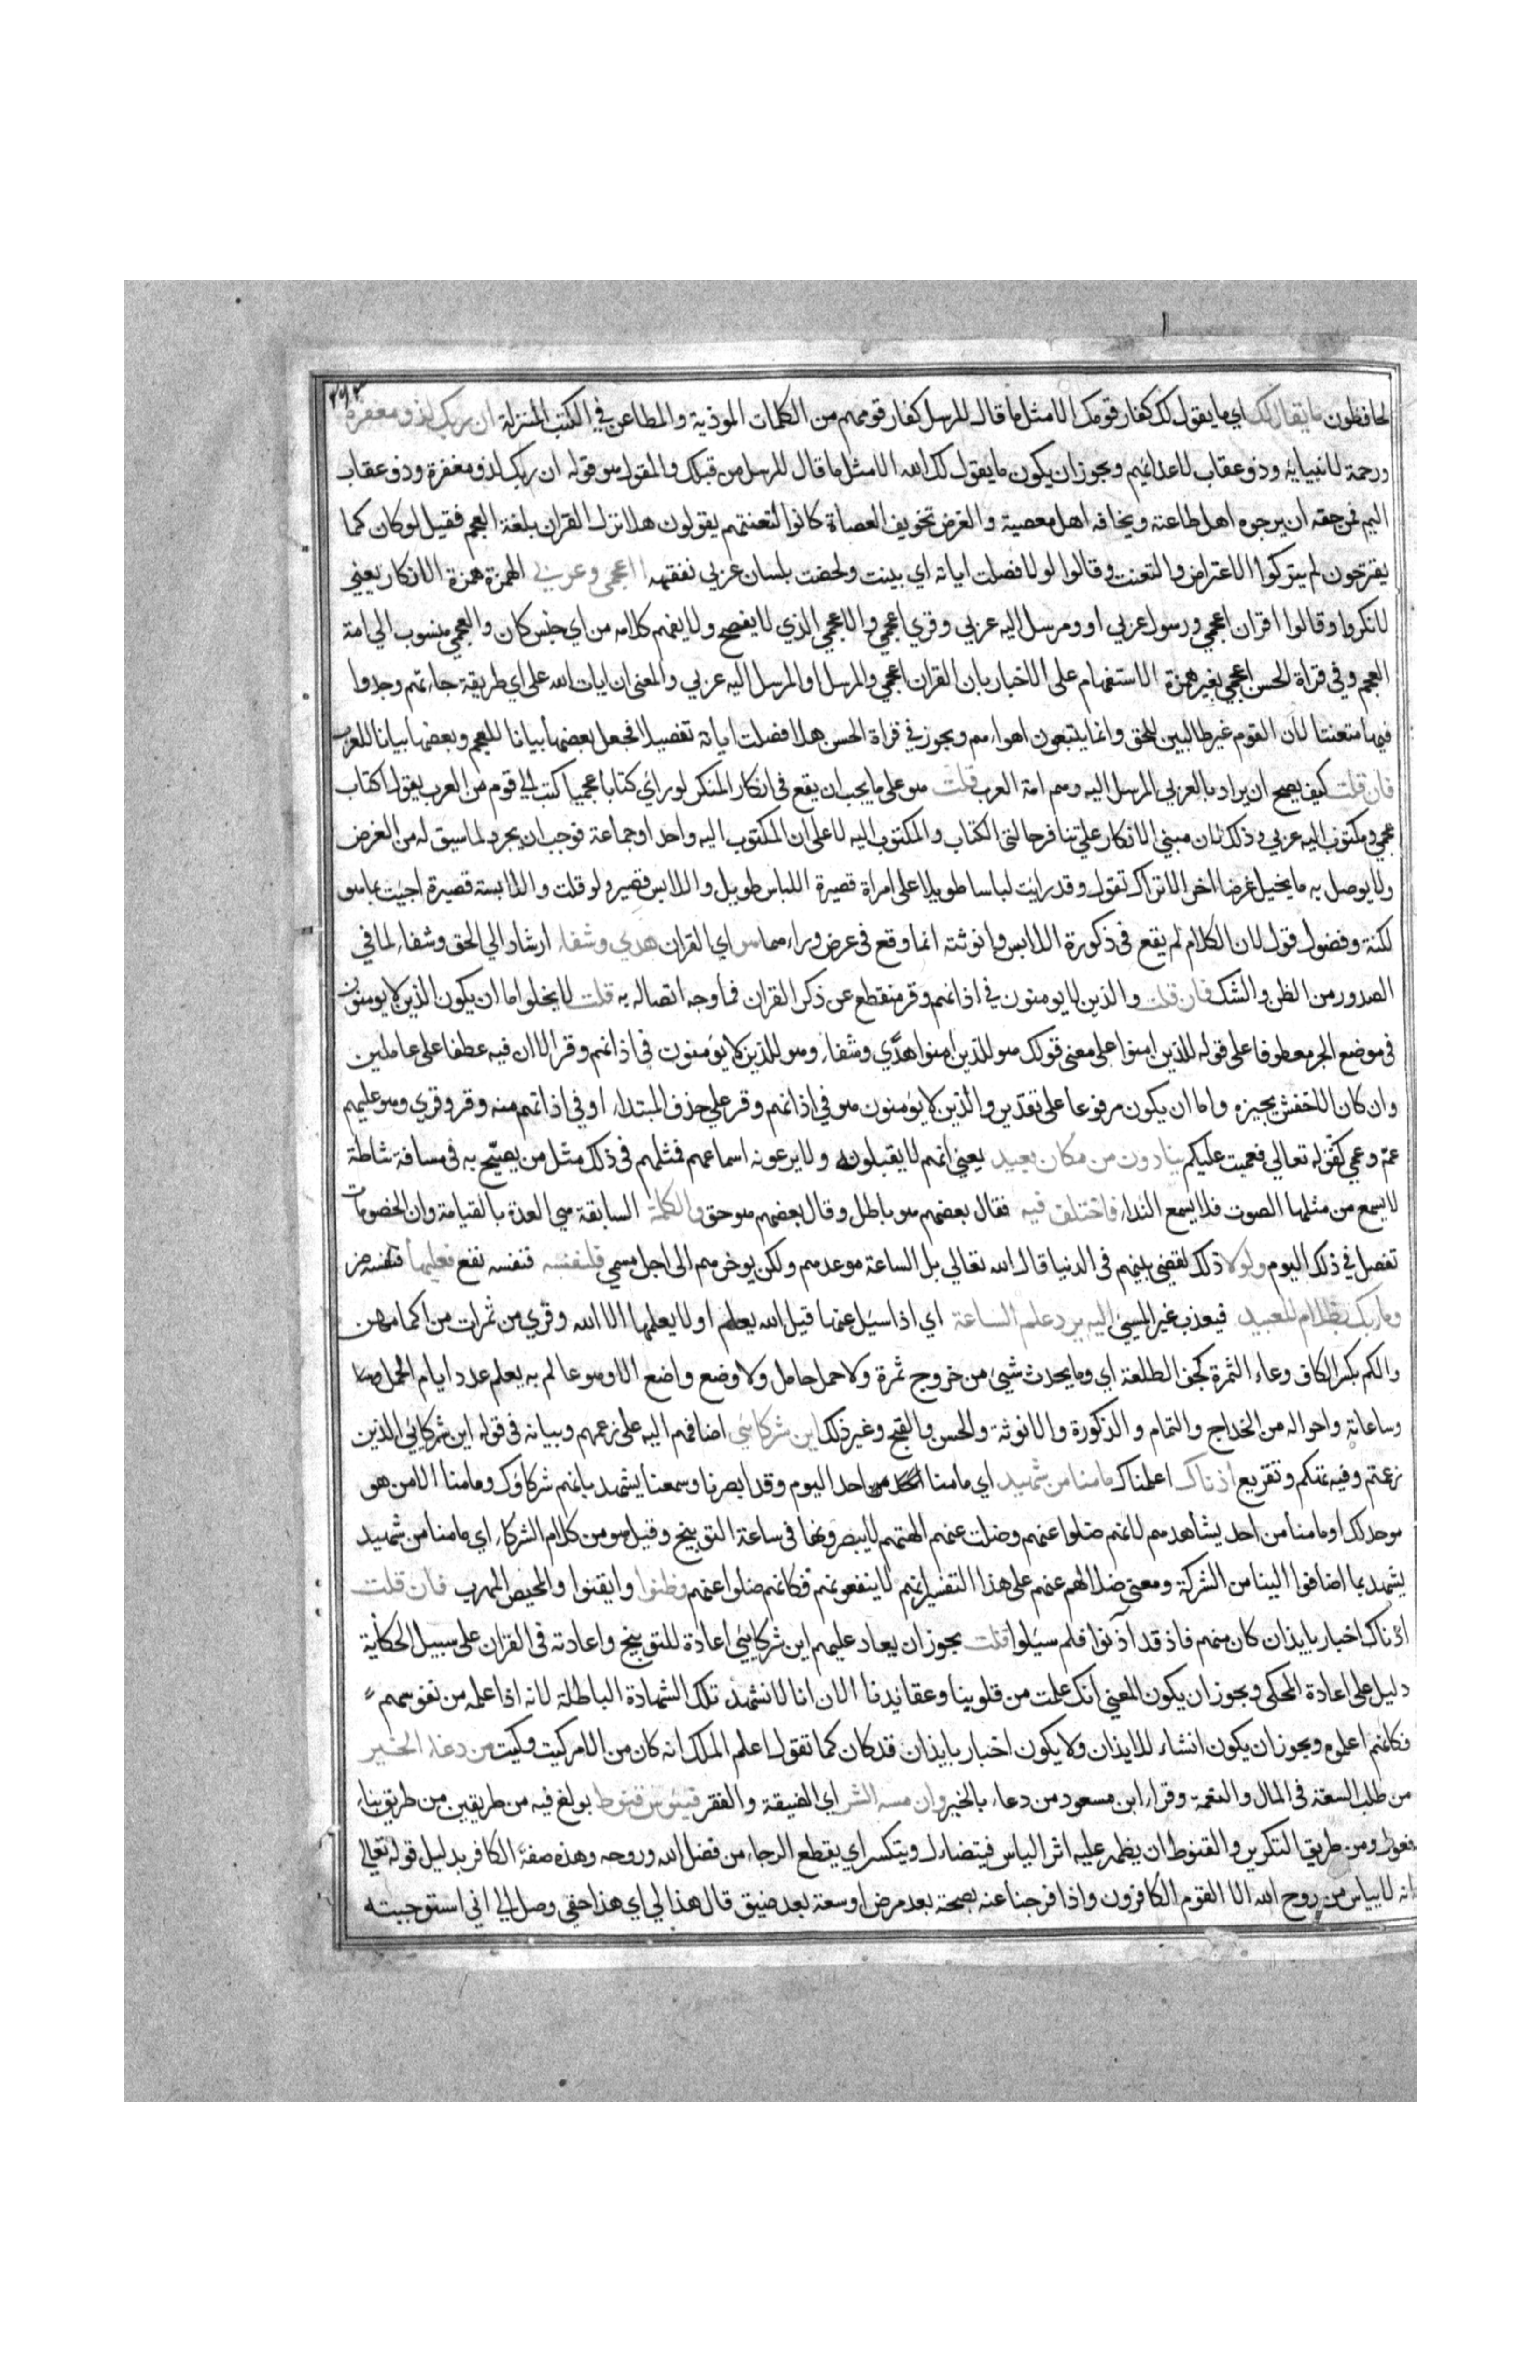 لحافظون ما يقال لك اي ما يقول لك كفار قومك الا مثل ما قال للرسل كفار قومهم من الكلمات الموذية والمطاعن في الكتب المنزلة ان ربك لذو مغفرة
ورحمة لانبيايه وذو عقاب لاعدائهم ويجوز ان يكون ما يقول لك الله الا مثل ما قال للرسل من قبلك والمقول هو قوله ان ربك لذو مغفرة وذو عقاب
اليم فمن حقه ان يرجوه اهل طاعته ويخافه اهل معصية والغرض تخويف العصاة كانوا لتعنتهم يقولون هلا نزل القران بلغة العجم فقيل لو كان كما
يقترحون لم يتركوا الاعتراض والتعنت وقالوا لولا فصلت اياته اي بينت ولخصت بلسان عربي نفقهه ااعجمي وعربي الهمزة همزة الانكار يعني
لانكروا وقالوا اقران اعجمي ورسول عربي او ومرسل اليه عربي وقري اعجمي والاعجمي الذي لا يفصح ولا يفهم كلامه من اي جنس كان والعجمي منسوب الي امة
العجم وفي قراة الحسن اعجمي بغير همزة الاستفهام على الاخبار بان القران اعجمي والمرسل او المرسل اليه عربي والمعنى ان ايات الله على اي طريقة جاءتهم وجدوا
فيها متعنتا لان القوم غير طالبين للحق وانما يتبعون اهواءهم ويجوز في قراة الحسن هلا فصلت اياته تفصيلا فجعل بعضها بيانا للعجم وبعضها بيانا للعرب
فان قلت كيف يصح ان يراد بالعربي المرسل اليه وهم امة العرب قلت هو على ما يجب ان يقع في انكار المنكر لو راي كتابا عجميا كتب الي قوم من العرب يقول اكتاب
عجمي ومكتوب اليه عربي وذلك لان مبني الانكار علي تنافر حالتي الكتاب والمكتوب اليه لا على ان المكتوب اليه واحد او جماعة فوجب ان يجرد لما سيق له من الغرض
ولا يوصل به ما يخيل غرضا اخر الا تراك تقول وقد رايت لباسا طويلا على امراة قصيرة اللباس طويل واللابس قصير ولو قلت واللابسة قصيرة اجيت بما هو
لكنة وفضول قول لان الكلام لم يقع في ذكورة اللابس وانوثته انما وقع في عرض وراءهما هو اي القران هدي وشفاء ارشاد الي الحق وشفاء لما في
الصدور من الظن والشك فان قلت والذين لا يومنون في اذانهم وقر منقطع عن ذكر القران فما وجه اتصاله به قلت لا يخلوا اما ان يكون الذين لا يومنون
في موضع الجر معطوفا على قوله للذين امنوا على معنى قولك هو للذين امنوا هدي وشفاء وهو للذين لا يومنون في اذانهم وقر الا ان فيه عطفا على عاملين
وان كان الاخفش يجيزه واما ان يكون مرفوعا على تقدير والذين لا يومنون هو في اذانهم وقر علي حذف المبتداء او في اذانهم منه وقر وقري وهو عليهم
عم وعمي كقوله تعالي فعميت عليكم ينادون من مكان بعيد يعني انهم لا يقبلونه ولا يرعونه اسماعهم فمثلهم في ذلك مثل من يصيح به في مسافة شاطة
لا يسمع من مثلها الصوت فلا يسمع النداء فاختلف فيه فقال بعضهم هو باطل وقال بعضهم هو حق والكلمة السابقة هي العدة بالقيامة وان الخصومات
تفصل في ذلك اليوم ولولا ذلك لقضي بينهم في الدنيا قال الله تعالي بل الساعة موعدهم ولكن يوخرهم الى اجل مسمي فلنفسه فنفسه نفع فعليها فنفسه ضر
وما ربك بظلام للعبيد فيعذب غير المسيئ اليه يرد علم الساعة اي اذا سيل عنها قيل الله يعلم او لا يعلمها الا الله وقري من ثمرات من اكمامهن
والكم بكسر الكاف وعاء الثمرة كجف الطلعة اي وما يحدث شيئ من خروج ثمرة ولا حمل حامل ولا وضع واضع الا وهو عالم به يعلم عدد ايام الحمل
وساعاته واحواله من الخداج والتمام والذكورة والانوثة والحسن والقبح وغير ذلك اين شركائي اضافهم اليه على زعمهم وبيانه في قوله اين شركائي الذين
زعمتم وفيه تهكم وتقريع اذناك اعلمناك ما منا من شهيد اي ما منا احد اليوم وقد ابصرنا وسمعنا يشهد بانهم شركاوك وما منا الا من هو
موحد لك او ما منا من احد يشاهدهم لانهم ضلوا عنهم وضلت عنهم الهتهم لا يبصرونها في ساعة التوبيخ وقيل هو من كلام الشركاء اي ما منا من شهيد
يشهد بما اضافوا الينا من الشركة ومعنى ضلالهم عنهم على هذا التفسير انهم لا ينفعونهم فكانهم ضلوا عنهم وظنوا وايقنوا والمحيص المهرب فان قلت
اذناك اخبار بايذان كان منهم فاذ قد آذنوا فلم سيلوا قلت يجوز ان يعاد عليهم اين شركائي اعادة للتوبيخ واعادته في القران على سبيل الحكاية
دليل على اعادة المحكي ويجوز ان يكون المعنى انك علمت من قلوبنا وعقائدنا الان انا لا نشهد تلك الشهادة الباطلة لانه اذا علمه من نفوسهم
فكانهم اعلموه ويجوز ان يكون انشاء للايذان ولا يكون اخبار بايذان قد كان كما تقول اعلم الملك انه كان من الامر كيت وكيت من دعاء الخير
من طلب السعة في المال والنعمة وقراء ابن مسعود من دعاء بالخير وان مسه الشر اي الضيقة والفقر فيئوس قنوط بولغ فيه من طريقين من طريق بناء
فعول ومن طريق التكرير والقنوط ان يظهر عليه اثر الياس فيتضاءل ويتكسر اي يقطع الرجاء من فضل الله وروحه وهذه صفة الكافر بدليل قوله تعالي
انه لا ييأس من روح الله الا القوم الكافرون واذا فرجنا عنه بصحة بعد مرض او سعة بعد ضيق قال هذا لي اي هذا حقي وصل الي اني استوجبته